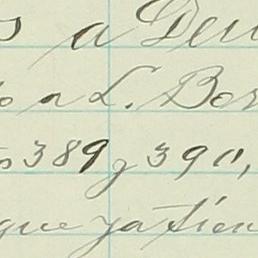 s a Deu
o a L. Bor
s 389 y 390,
que ya tien